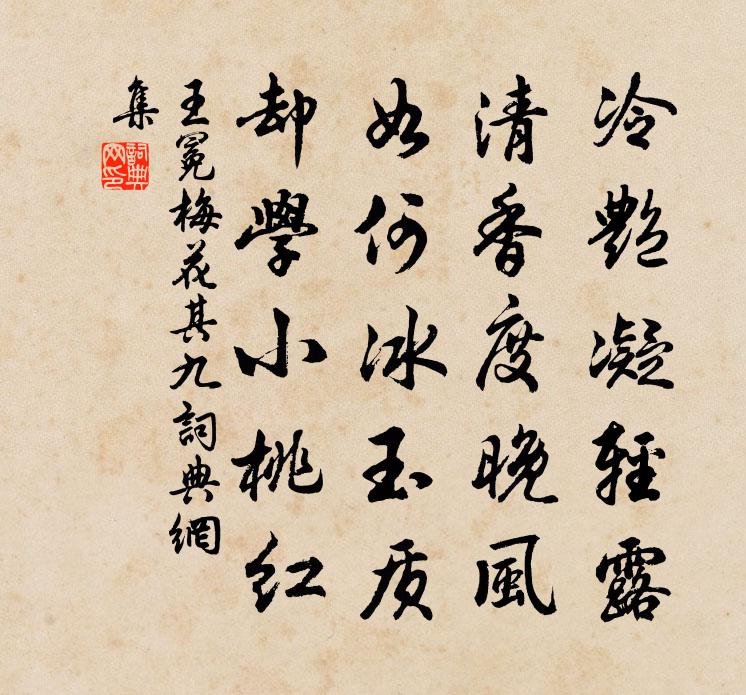 冷艷凝輕露
清香度晚風
如何冰玉质
却學小桃紅
王冕梅花其九詞典網
集
詞典網印